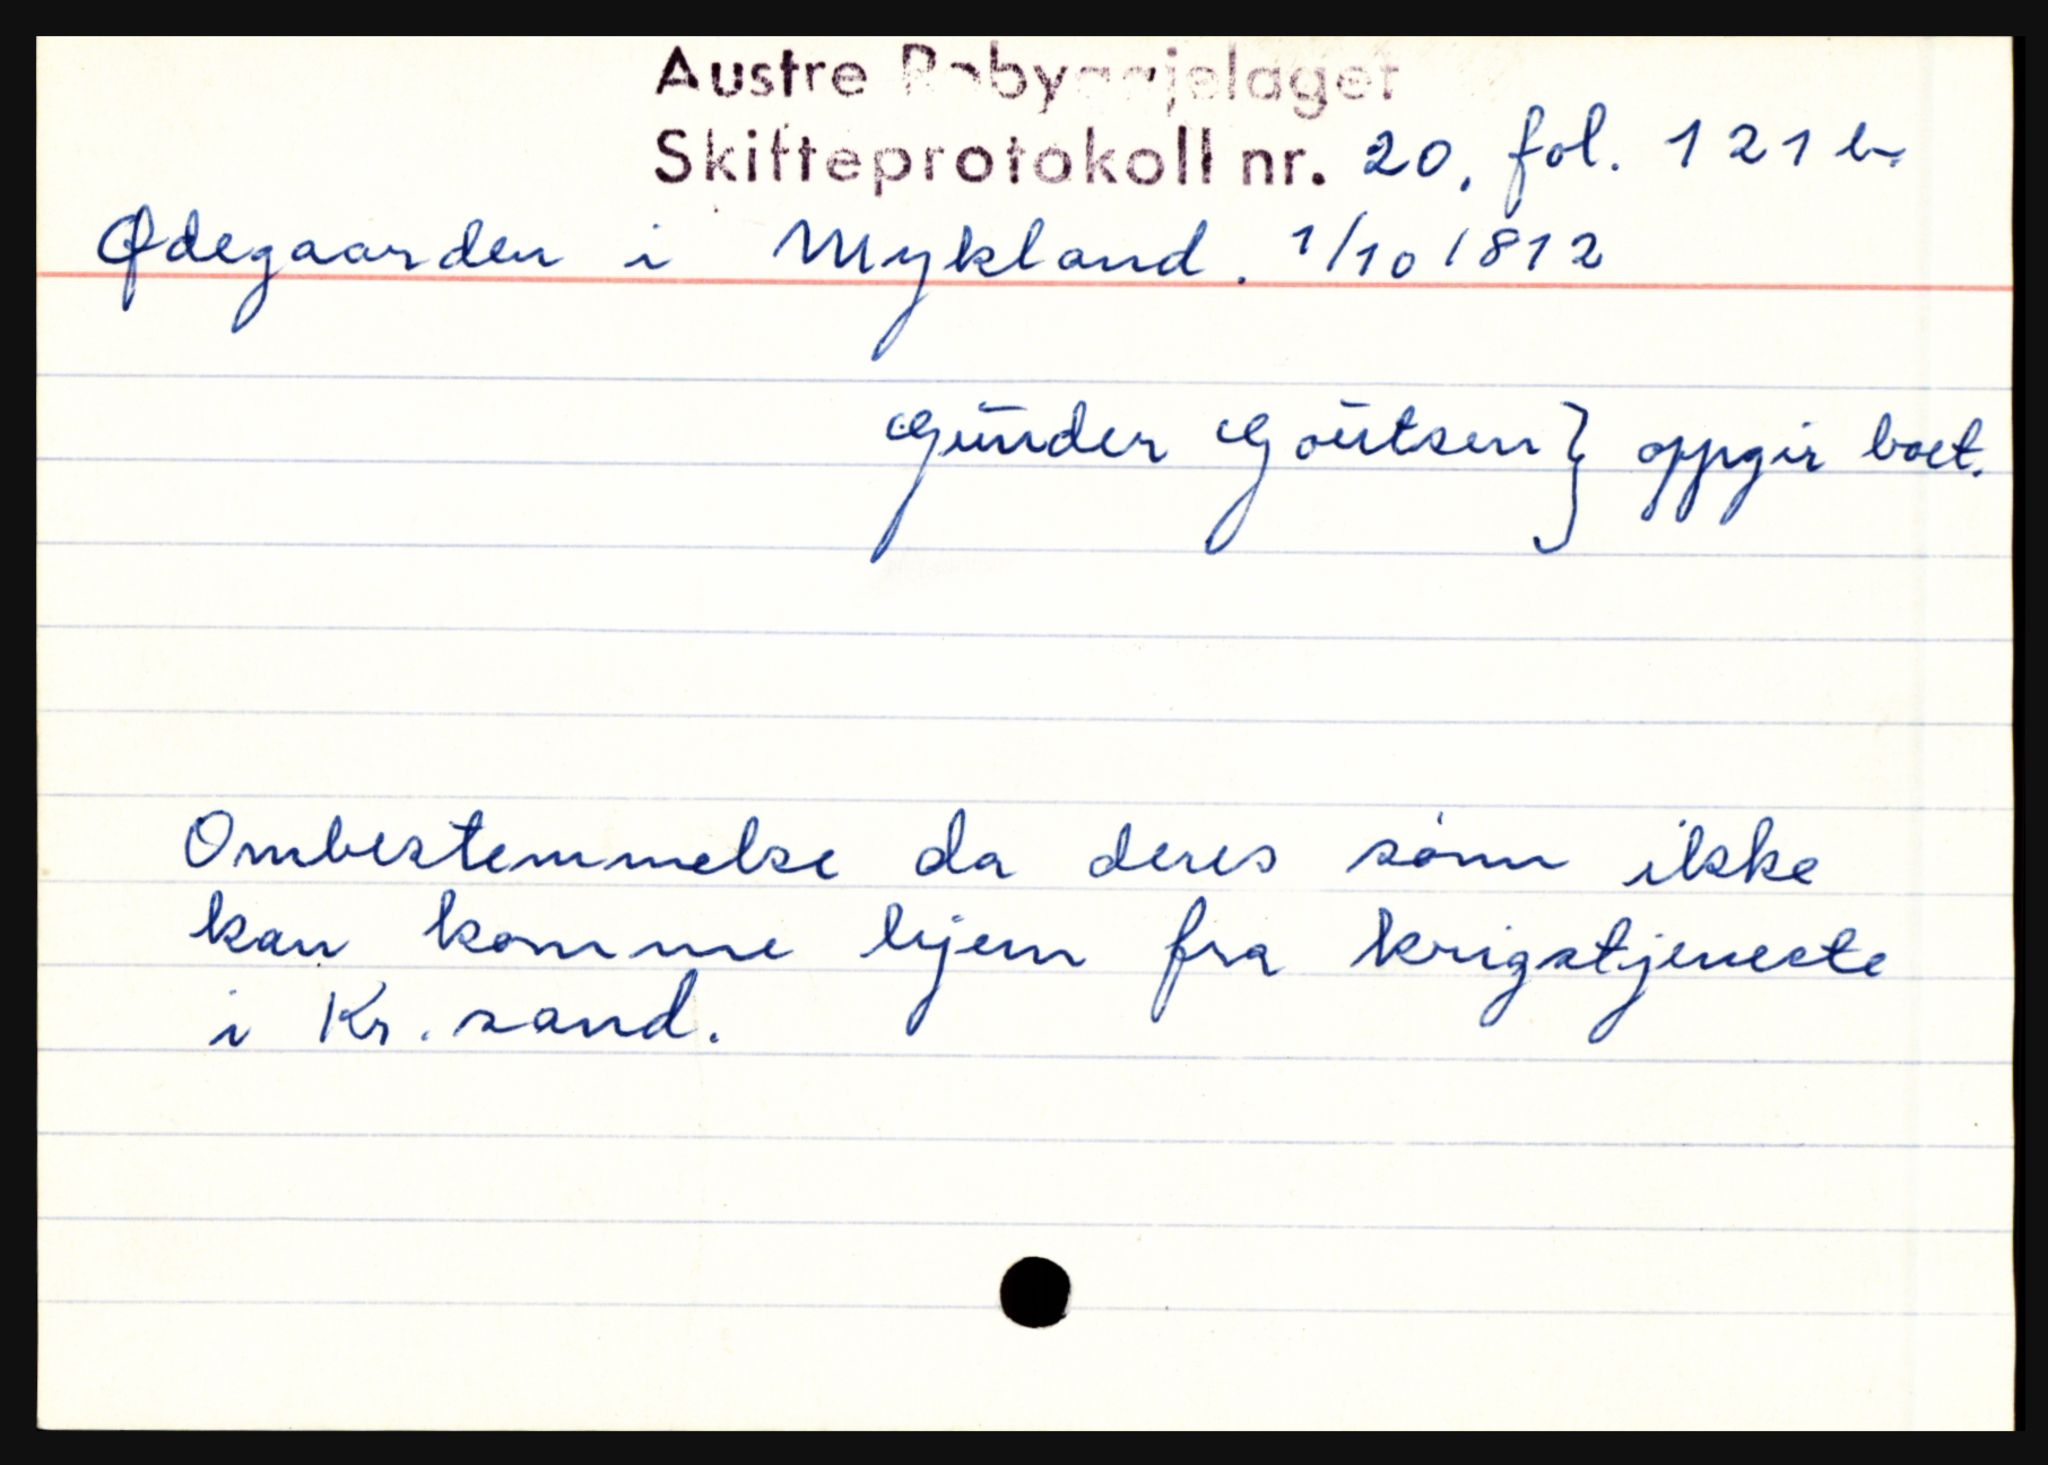 Austre Robyggjelaget
Skifteprotokoll nr. 20, fol. 121 b.
Ødegaarden i Mykland. 1/10 1812
Gunder Goutsen } oppgir boet.
Ombestemmelse da deres sønn ikke
kan komme hjem fra krigstjeneste
i Kr.sand.